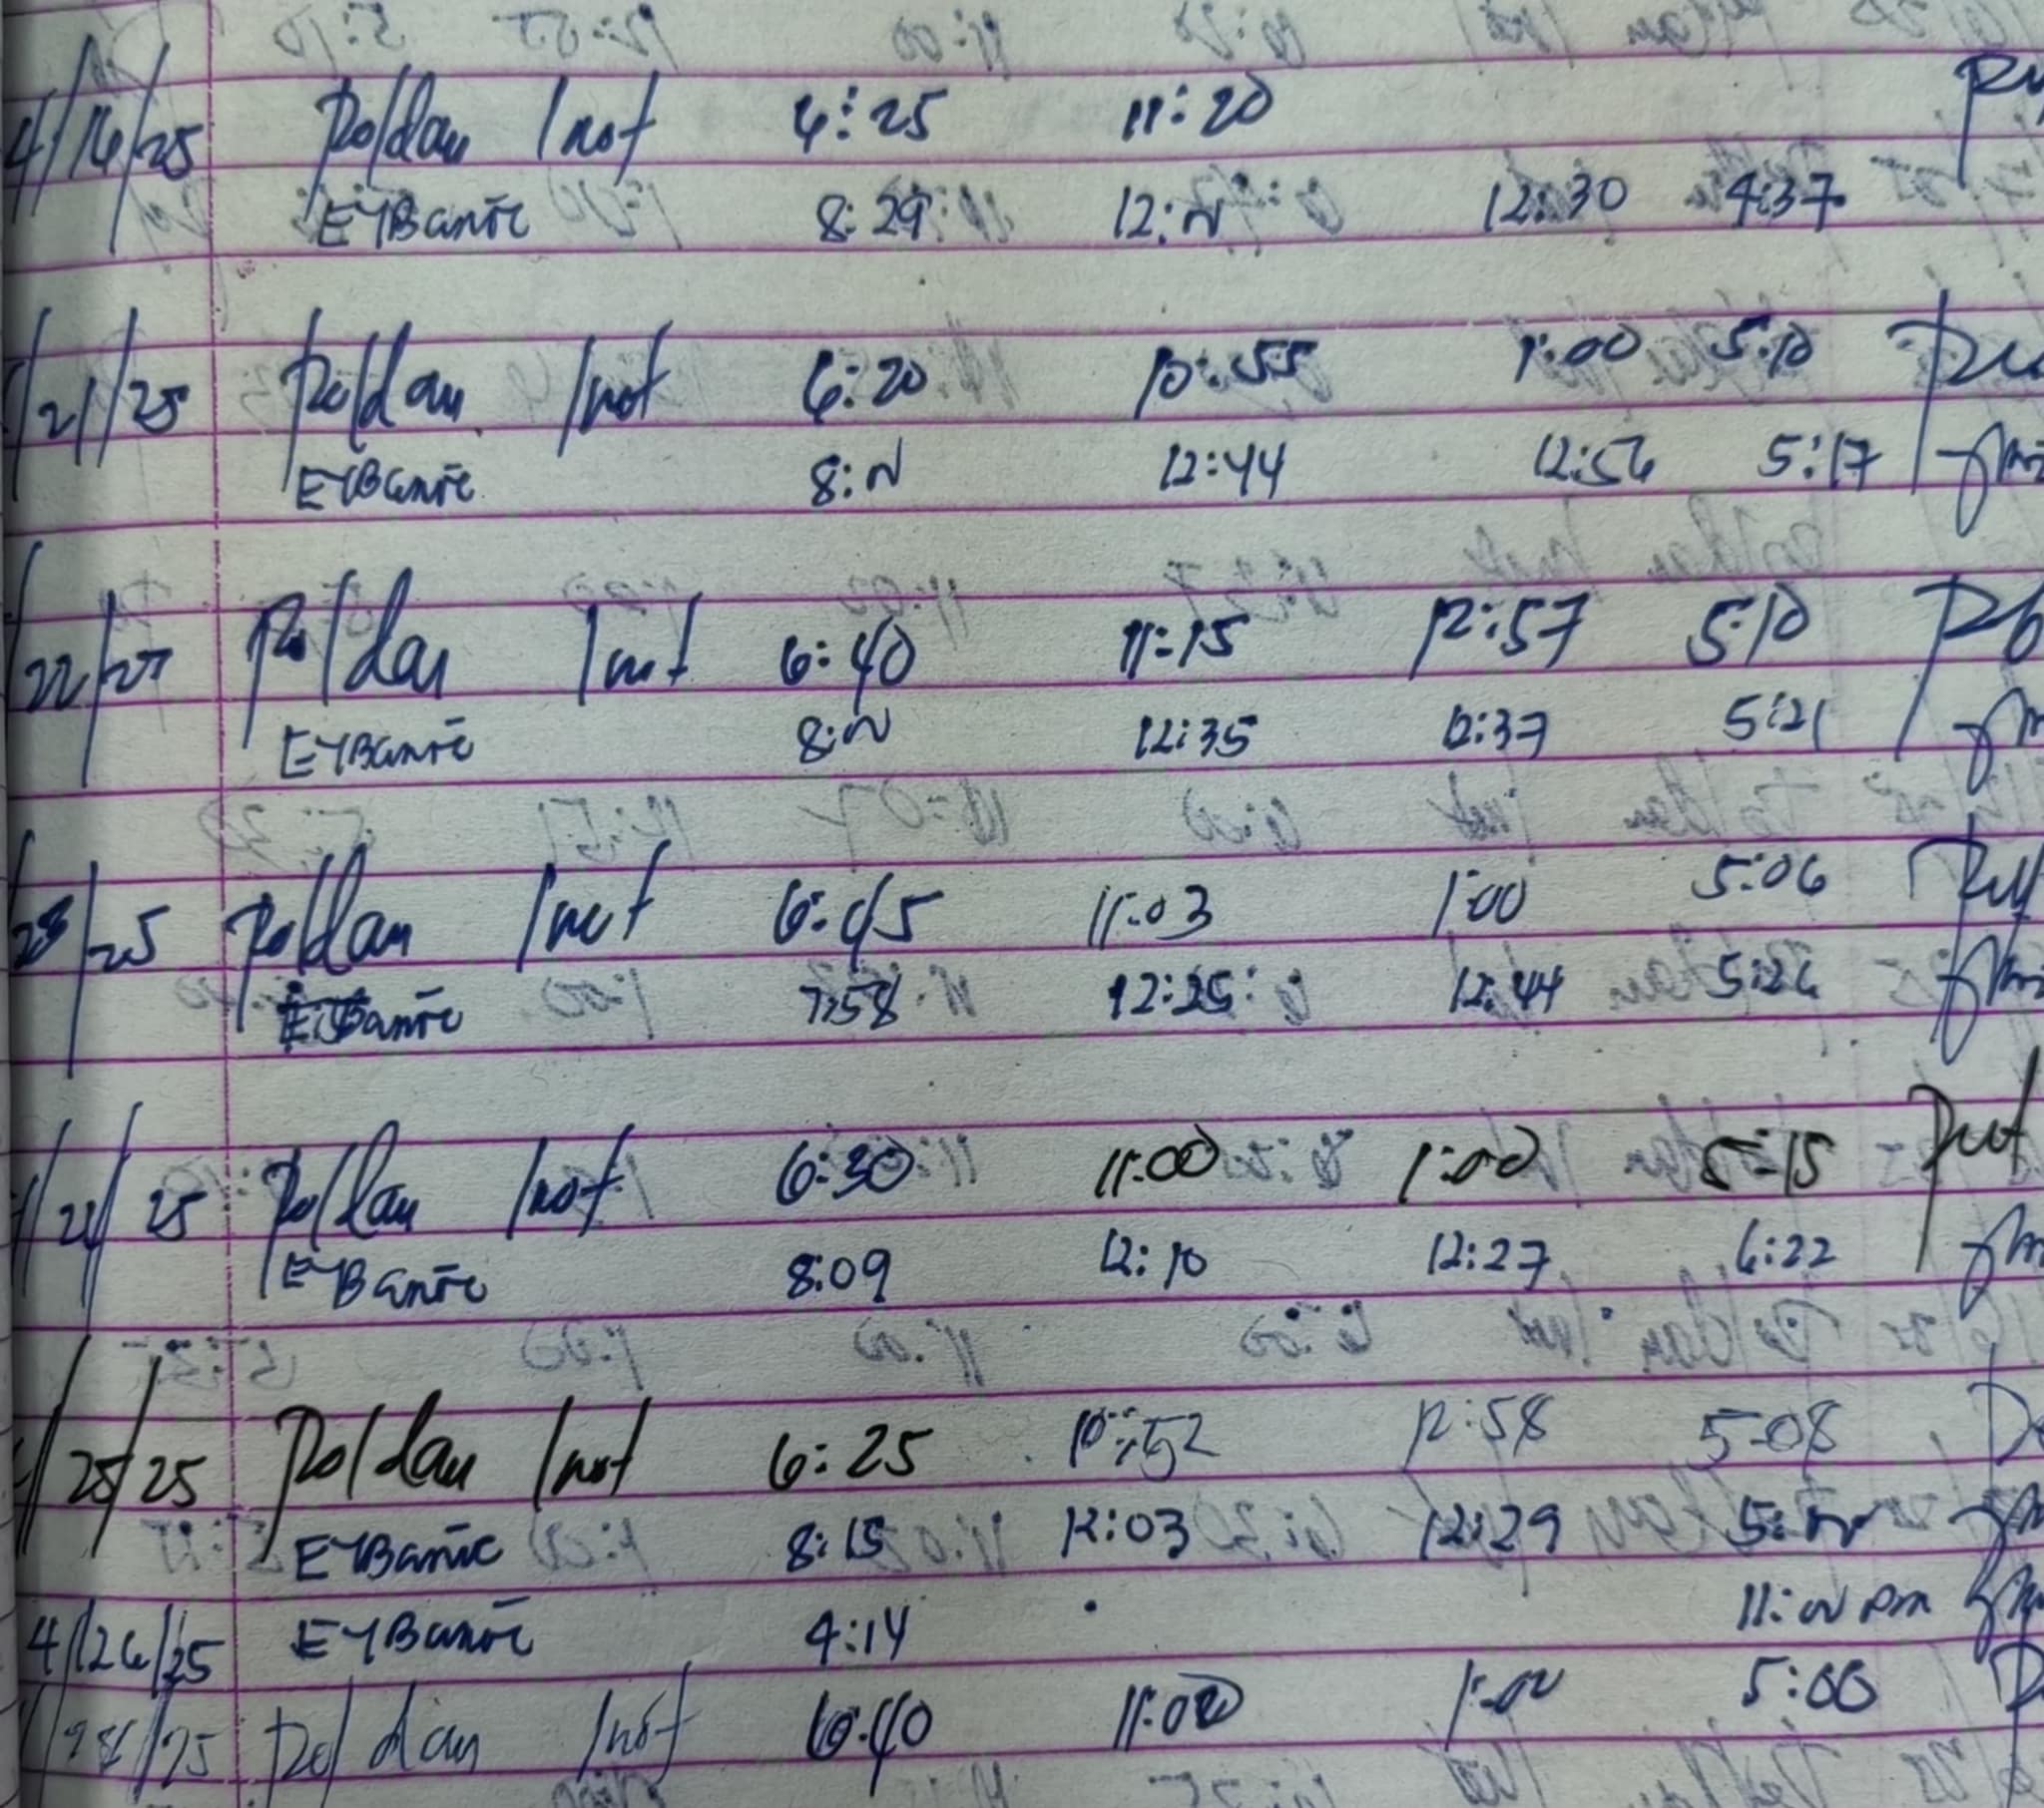 4/16/25 Roldan Inot 6:25 11:20
EYBañic 8:29 12:N 12:30 4:37
/21/25 Roldan Inot 6:20 10:55 1:00 5:10
EYBañic 8:N 12:44 12:56 5:17
/22/25 Roldan Inot 6:40 11:15 12:57 5:10
EYBañic 8:N 12:35 12:37 5:21
/25 Roldan Inot 6:45 11:03 1:00 5:06
EYBañic 7:58 12:25 12:44 5:26
/25 Roldan Inot 6:30 11:00 1:00 5:15
EYBañic 8:09 12:10 12:27 6:22
/25/25 Roldan Inot 6:25 10:52 12:58 5:08
EYBañic 8:15 12:03 12:29
4/26/25 EYBañic 4:14 11:00 pm
/28/25 Roldan Inot 6:40 11:00 1:00 5:00